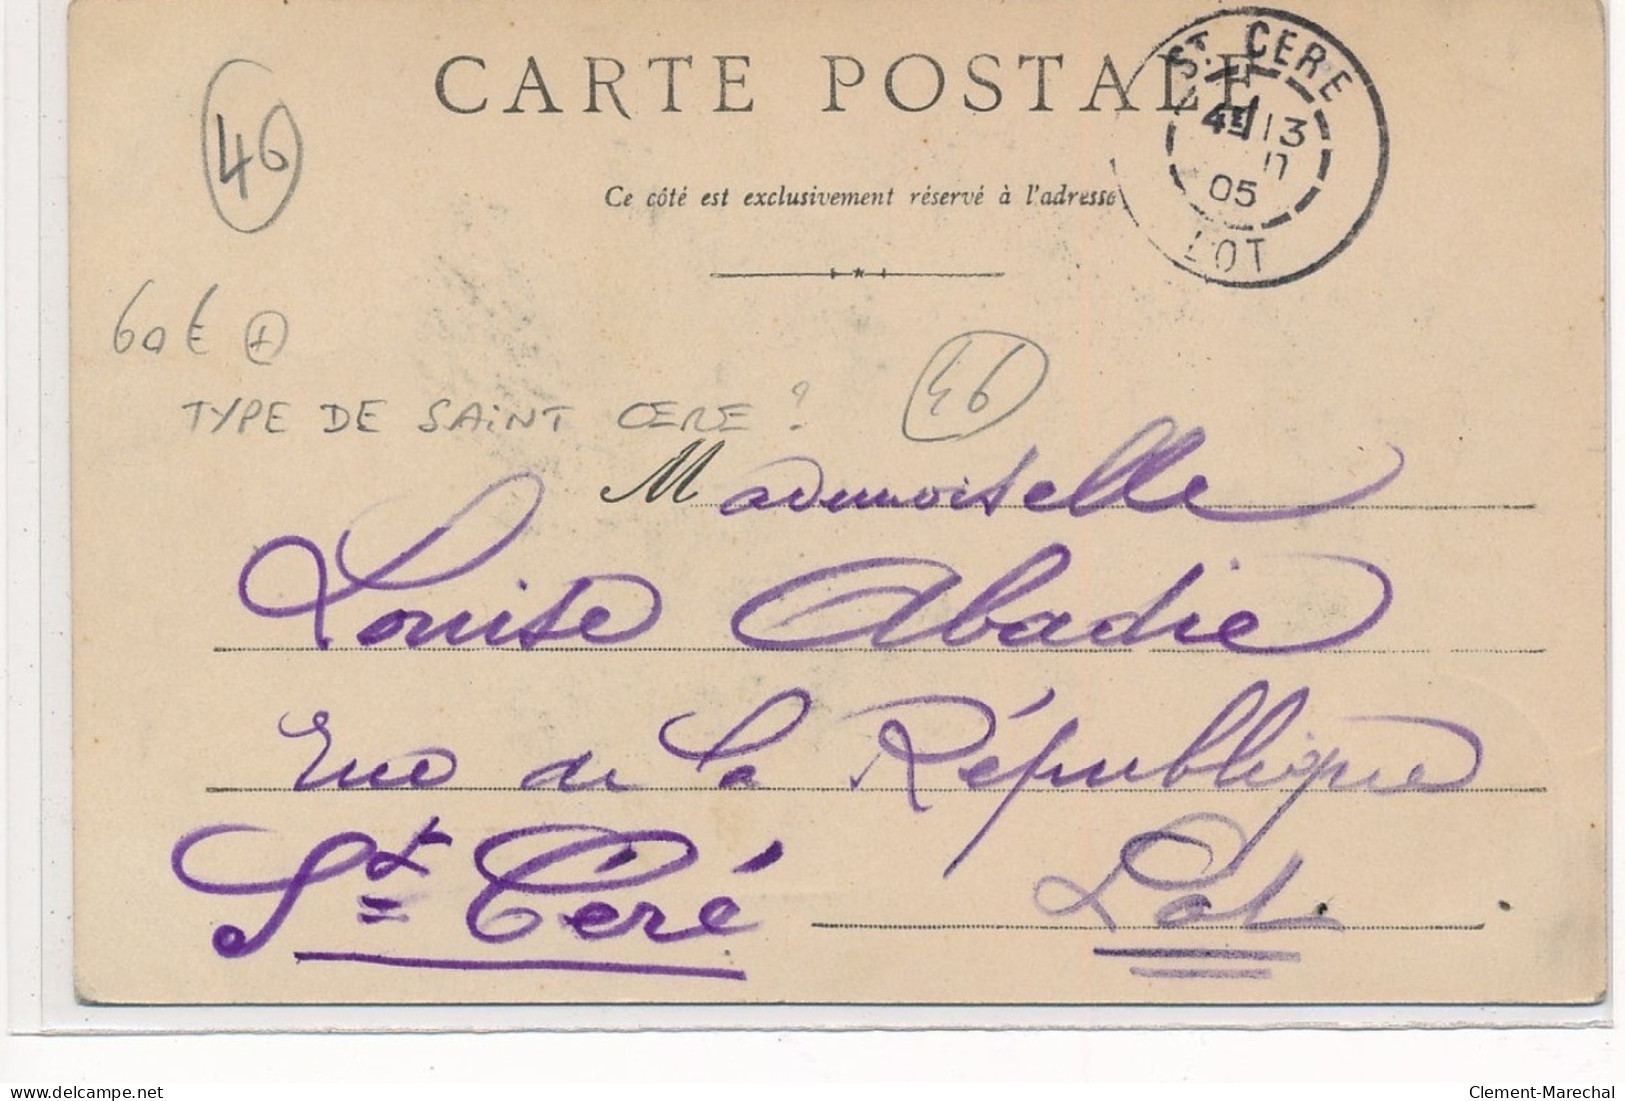 CARTE POSTALE
ST. CERE
4E 13
11
05
LOT
Ce côté est exclusivement réservé à l'adresse
46
60€ +
46
TYPE DE SAINT CERE ?
Mademoiselle
Louise Abadie
Rue de la République
St Céré Lot
delcampe.net
Clement-Marechal